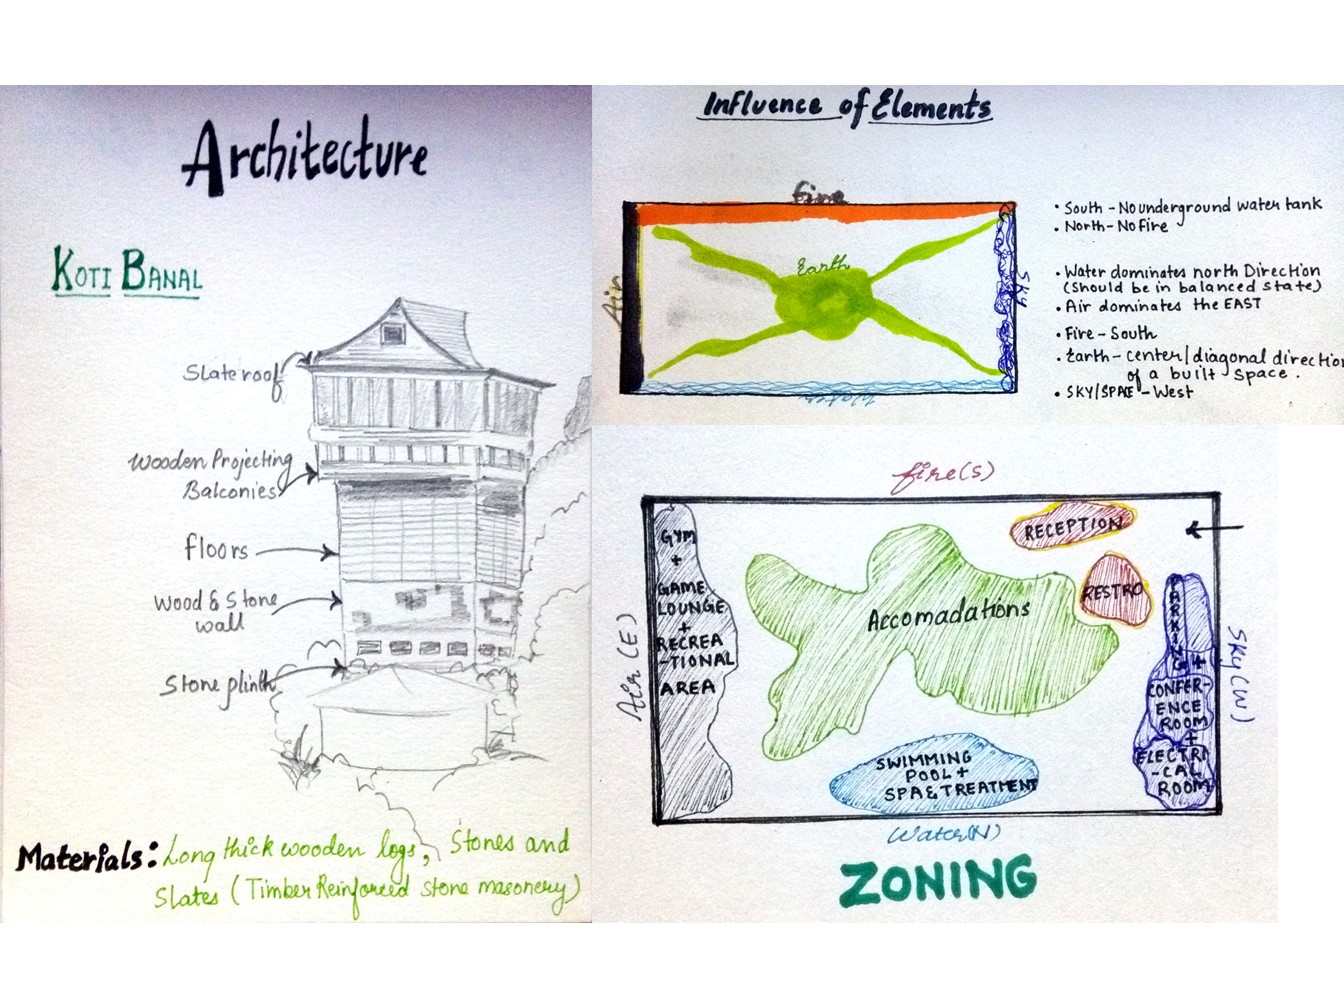 Architecture
KOTI BANAL
Slate roof
Wooden Projecting
Balconies
floors
Wood & Stone
wall
Stone plinth
Materials: Long thick wooden logs, Stones and
Slates (Timber Reinforced stone masonery)
Influence of Elements
fire
Air
Earth
Sky
Water
• South - No underground water tank
• North - No Fire
• Water dominates north Direction
(Should be in balanced state)
• Air dominates the EAST
• Fire - South
• Earth - center/diagonal direction
of a built space.
• SKY/SPACE - West
fire(S)
Air(E)
GYM
+
GAME
LOUNGE
+
RECREA
-TIONAL
AREA
Accomadations
RECEPTION
RESTRO
PARKING
+
CONFER-
ENCE
ROOM
+
ELECTRI
-CAL
ROOM
SWIMMING
POOL +
SPA & TREATMENT
Sky(W)
Water(N)
ZONING